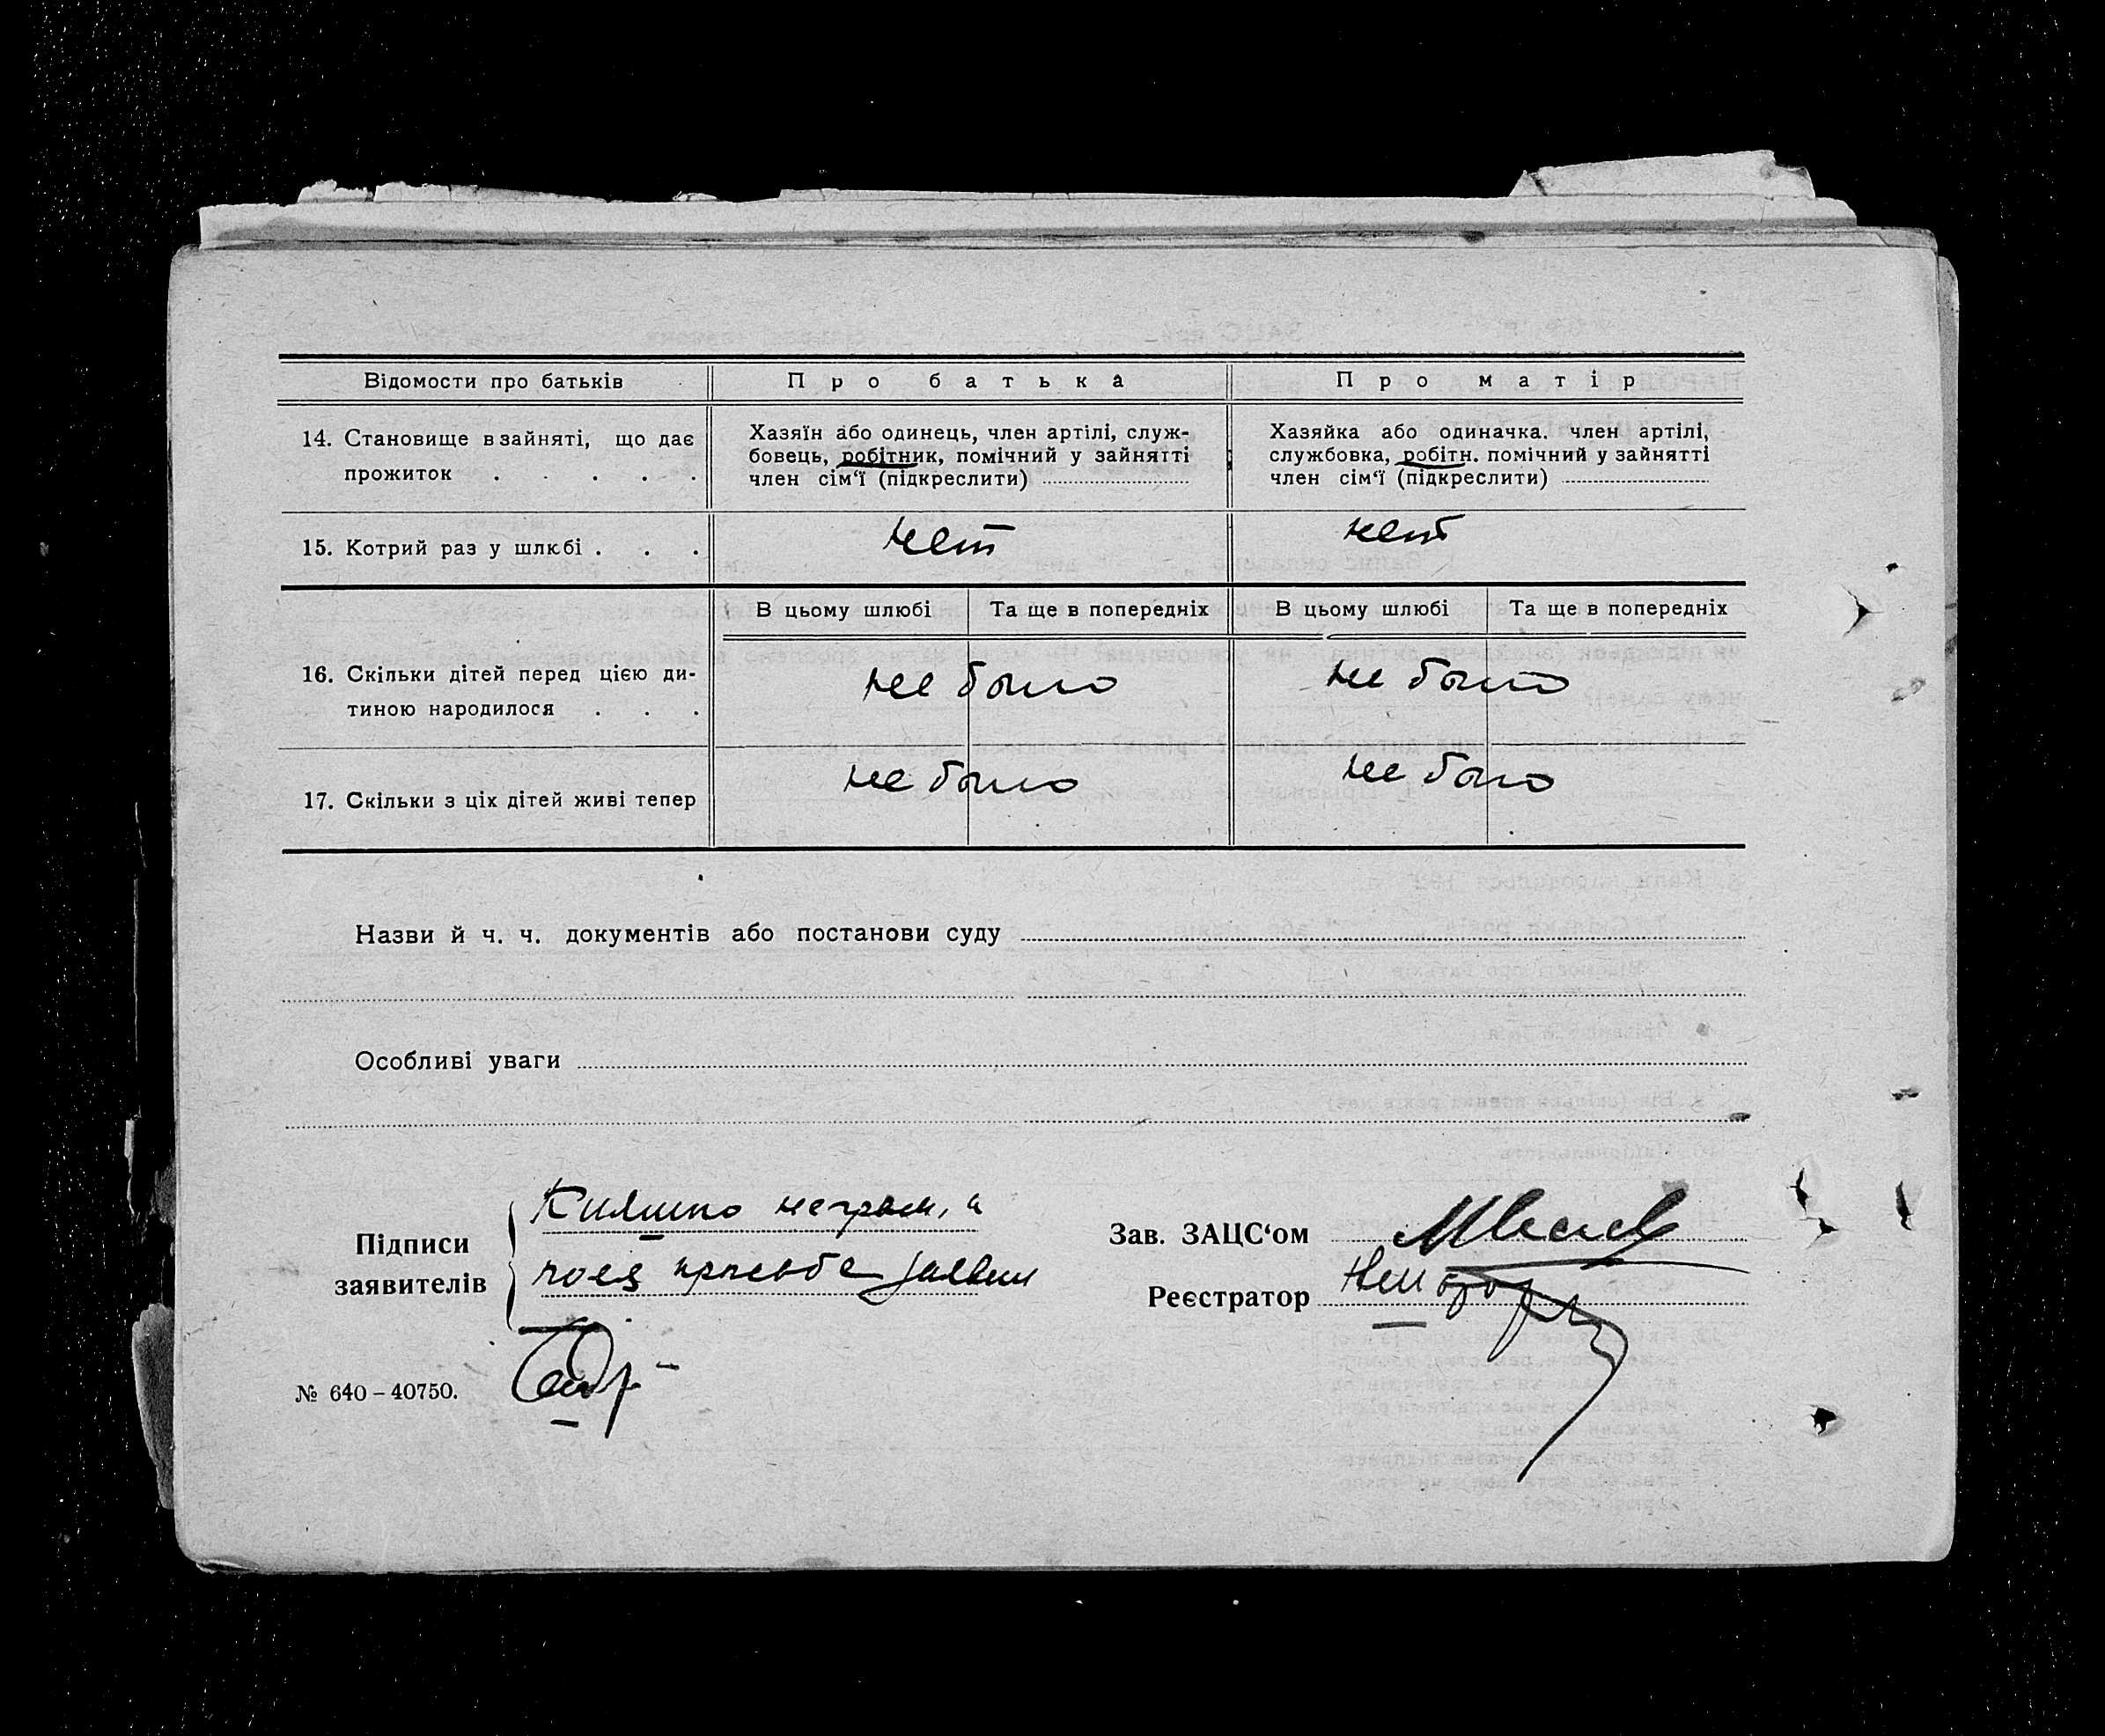 Відомости про батьків
Про батька
Про матір
14. Становище в зайняті, що дає
прожиток . . . . .
Хазяїн або одинець, член артілі, служ-
бовець, робітник, помічний у зайнятті
член сім'ї (підкреслити)
Хазяйка або одиначка. член артілі,
службовка, робітн. помічний у зайнятті
член сім'ї (підкреслити)
15. Котрий раз у шлюбі . . .
нет
нет
В цьому шлюбі
Та ще в попередніх
В цьому шлюбі
Та ще в попередніх
16. Скільки дітей перед цією ди-
тиною народилося . . .
не было
не было
17. Скільки з ціх дітей живі тепер
не было
не было
Назви й ч. ч. документів або постанови суду
Особливі уваги
Підписи
заявителів
неграм, а
Зав. ЗАЦС'ом
Реєстратор
№ 640-40750.